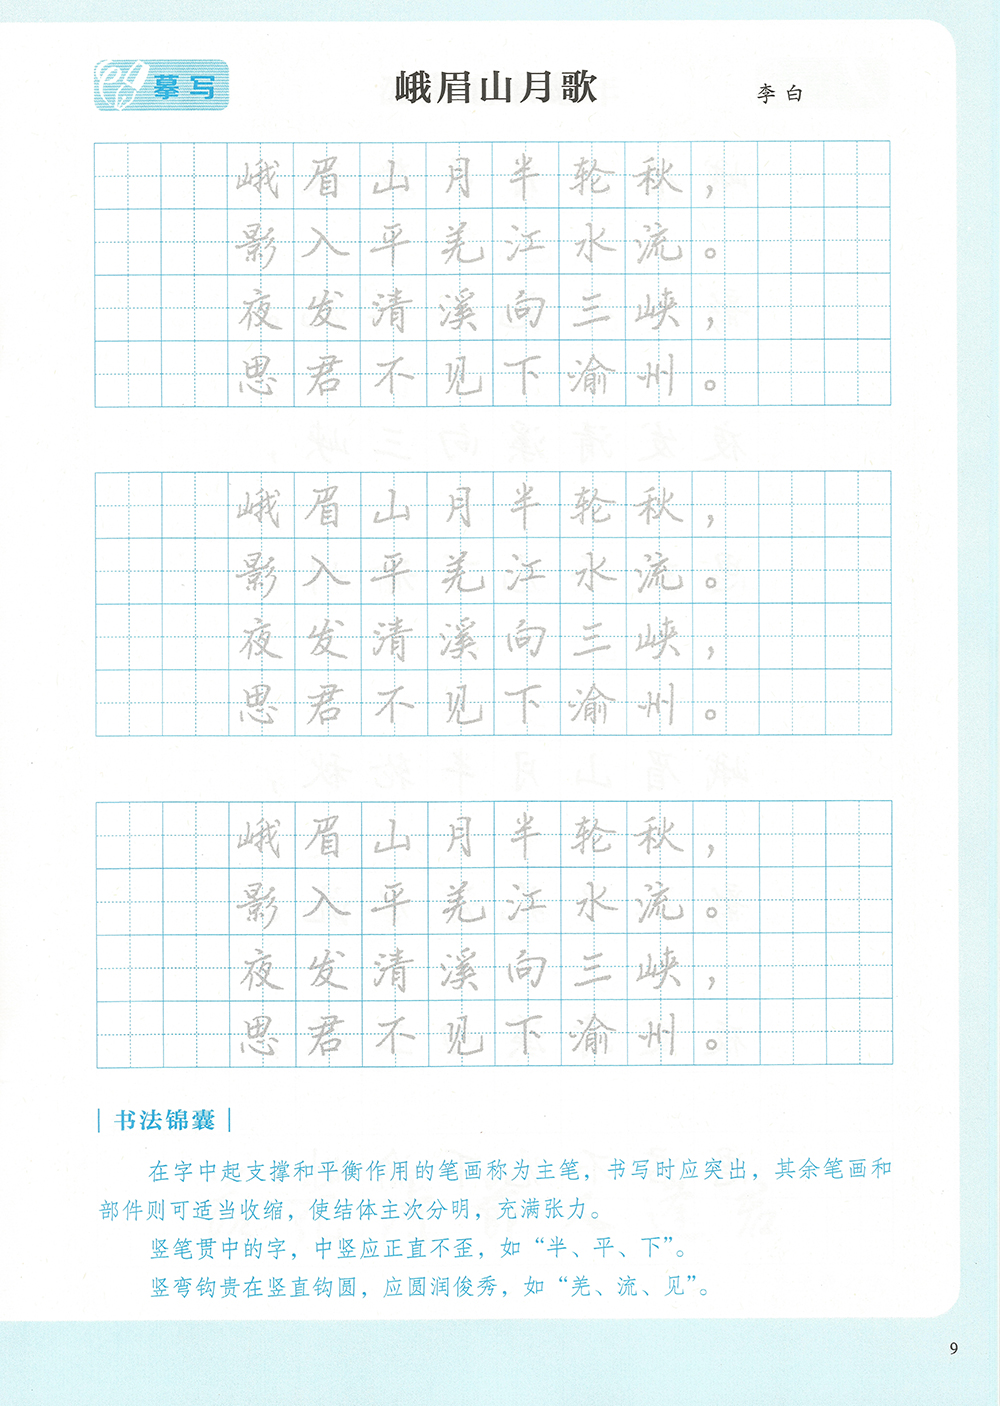 摹写
峨眉山月歌
李白
峨眉山月半轮秋，
影入平羌江水流。
夜发清溪向三峡，
思君不见下渝州。
峨眉山月半轮秋，
影入平羌江水流。
夜发清溪向三峡，
思君不见下渝州。
峨眉山月半轮秋，
影入平羌江水流。
夜发清溪向三峡，
思君不见下渝州。
书法锦囊
在字中起支撑和平衡作用的笔画称为主笔，书写时应突出，其余笔画和
部件则可适当收缩，使结体主次分明，充满张力。
竖笔贯中的字，中竖应正直不歪，如“半、平、下”。
竖弯钩贵在竖直钩圆，应圆润俊秀，如“羌、流、见”。
9